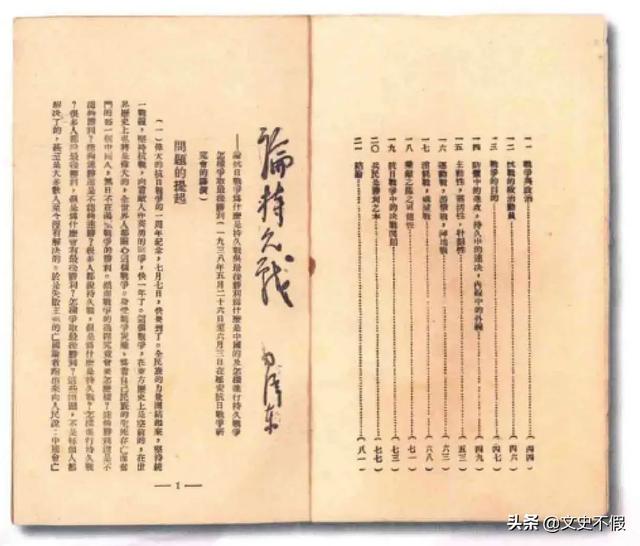 一一 戰爭與政治……(四四)
一二 抗戰的政治動員……(四六)
一三 戰爭的目的……(四七)
一四 防禦中的進攻,持久中的速決,內線中的外線……(四九)
一五 主動性,靈活性,計劃性……(五三)
一六 運動戰,游擊戰,陣地戰……(六三)
一七 消耗戰,殲滅戰……(六八)
一八 乘敵之隙之可能性……(七一)
一九 抗日戰爭中的決戰問題……(七三)
二〇 兵民是勝利之本……(七七)
二一 結論……(八一)
論持久戰 毛澤東
——論抗日戰爭爲什麼是持久戰與最後勝利爲什麼是中國的及怎樣進行持久戰爭
怎樣爭取最後勝利(一九三八年五月二十六日至六月三日在延安抗日戰爭研
究會的講演)
問題的提起
(一)偉大的抗日戰爭的一周年紀念,七月七日,快要到了。全民族的力量團結起來,堅持統
一戰線,堅持抗戰,向着敵人作英勇的戰爭,快一年了。這個戰爭,在東方歷史上是空前的,在世
界歷史上也將是偉大的,全世界人都關心這個戰爭。身受戰爭災難,爲着自己民族的生死存亡而奮
鬥的每一個中國人,無日不在渴望戰爭的勝利。然而戰爭的過程究竟會要怎麼樣?能夠勝利還是不
能夠勝利?能夠速勝還是不能夠速勝?很多人都說持久戰,但是爲什麼是持久戰?怎樣進行持久戰
?很多人都說最後勝利,但是爲什麼會有最後勝利?怎樣爭取最後勝利?這些問題,不是每個人都
解決了的,甚至是大多數人至今沒有解決的。於是失敗主義的亡國論者跑出來向人民說:中國會亡
— 1 —
头条 @文史不假